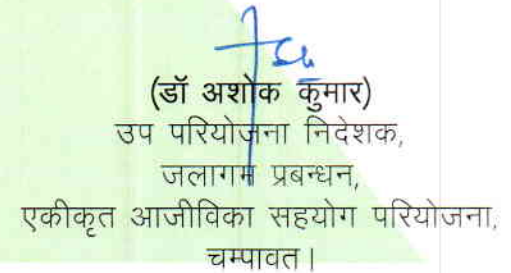 (डॉ अशोक कुमार)
उप परियोजना निदेशक,
जलागम प्रबन्धन,
एकीकृत आजीविका सहयोग परियोजना,
चम्पावत।